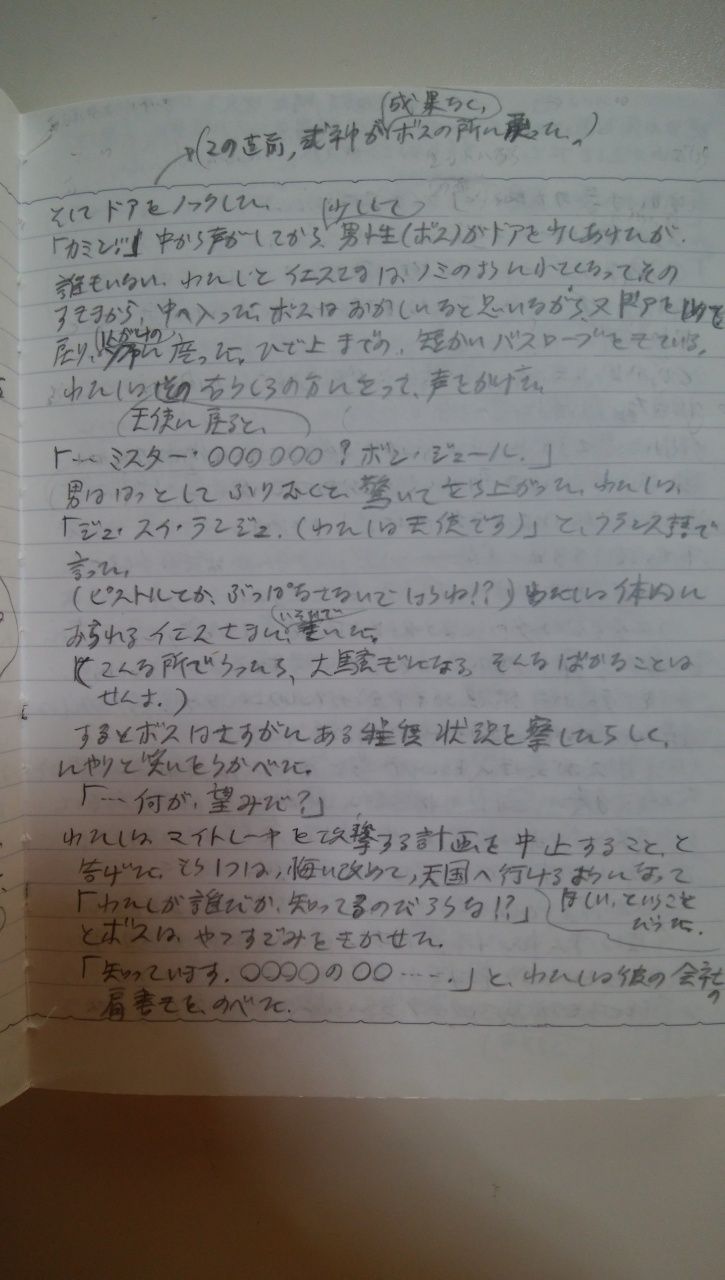 成果なく、
(この直前, 式神がボスの所に戻った。)
そしてドアをノックした。
少しして
「カミング」中から声がしてから、男性(ボス)がドアを少しあけたが、
誰もいない。わたしとイエスさまは、ノミのように小さくなってその
すきまから、中へ入った。ボスはおかしいなと思いながら、又ドアをしめて
戻り、に座った。ひざ上までの、短かいバスローブをきている。
わたしはその右うしろの方に立って、声をかけた。
天使に戻ると、
「… ミスター・〇〇〇〇〇〇?ボン・ジュール.」
男ははっとしてふりむくと、驚いて立ち上がった。わたしは、
「ジュ・スイ・ランジュ.(わたしは天使です)」と、フランス語で
言った。
(ピストルとか、ぶっぱなさないでしょうね!?)わたしは体内に
おられるイエスさまに、きいた。
いそいで
(こんな所でうったら、大騒ぎになる。そんなばかなことは
せんよ.)
するとボスはさすがにある程度状況を察したらしく、
にやりと笑いをうかべた。
「… 何が、望みだ?」
わたしは、マイトレーヤを攻撃する計画を中止すること、と
告げた。もう1つは、悔い改めて、天国へ行けるようになって
ほしい、ということ
だった。
「わたしが誰だか、知ってるのだろうな!?」
とボスは、やっすごみをきかせた。
「知っています. 〇〇〇〇の〇〇…….」と、わたしは彼の会社の
肩書きを、のべた.